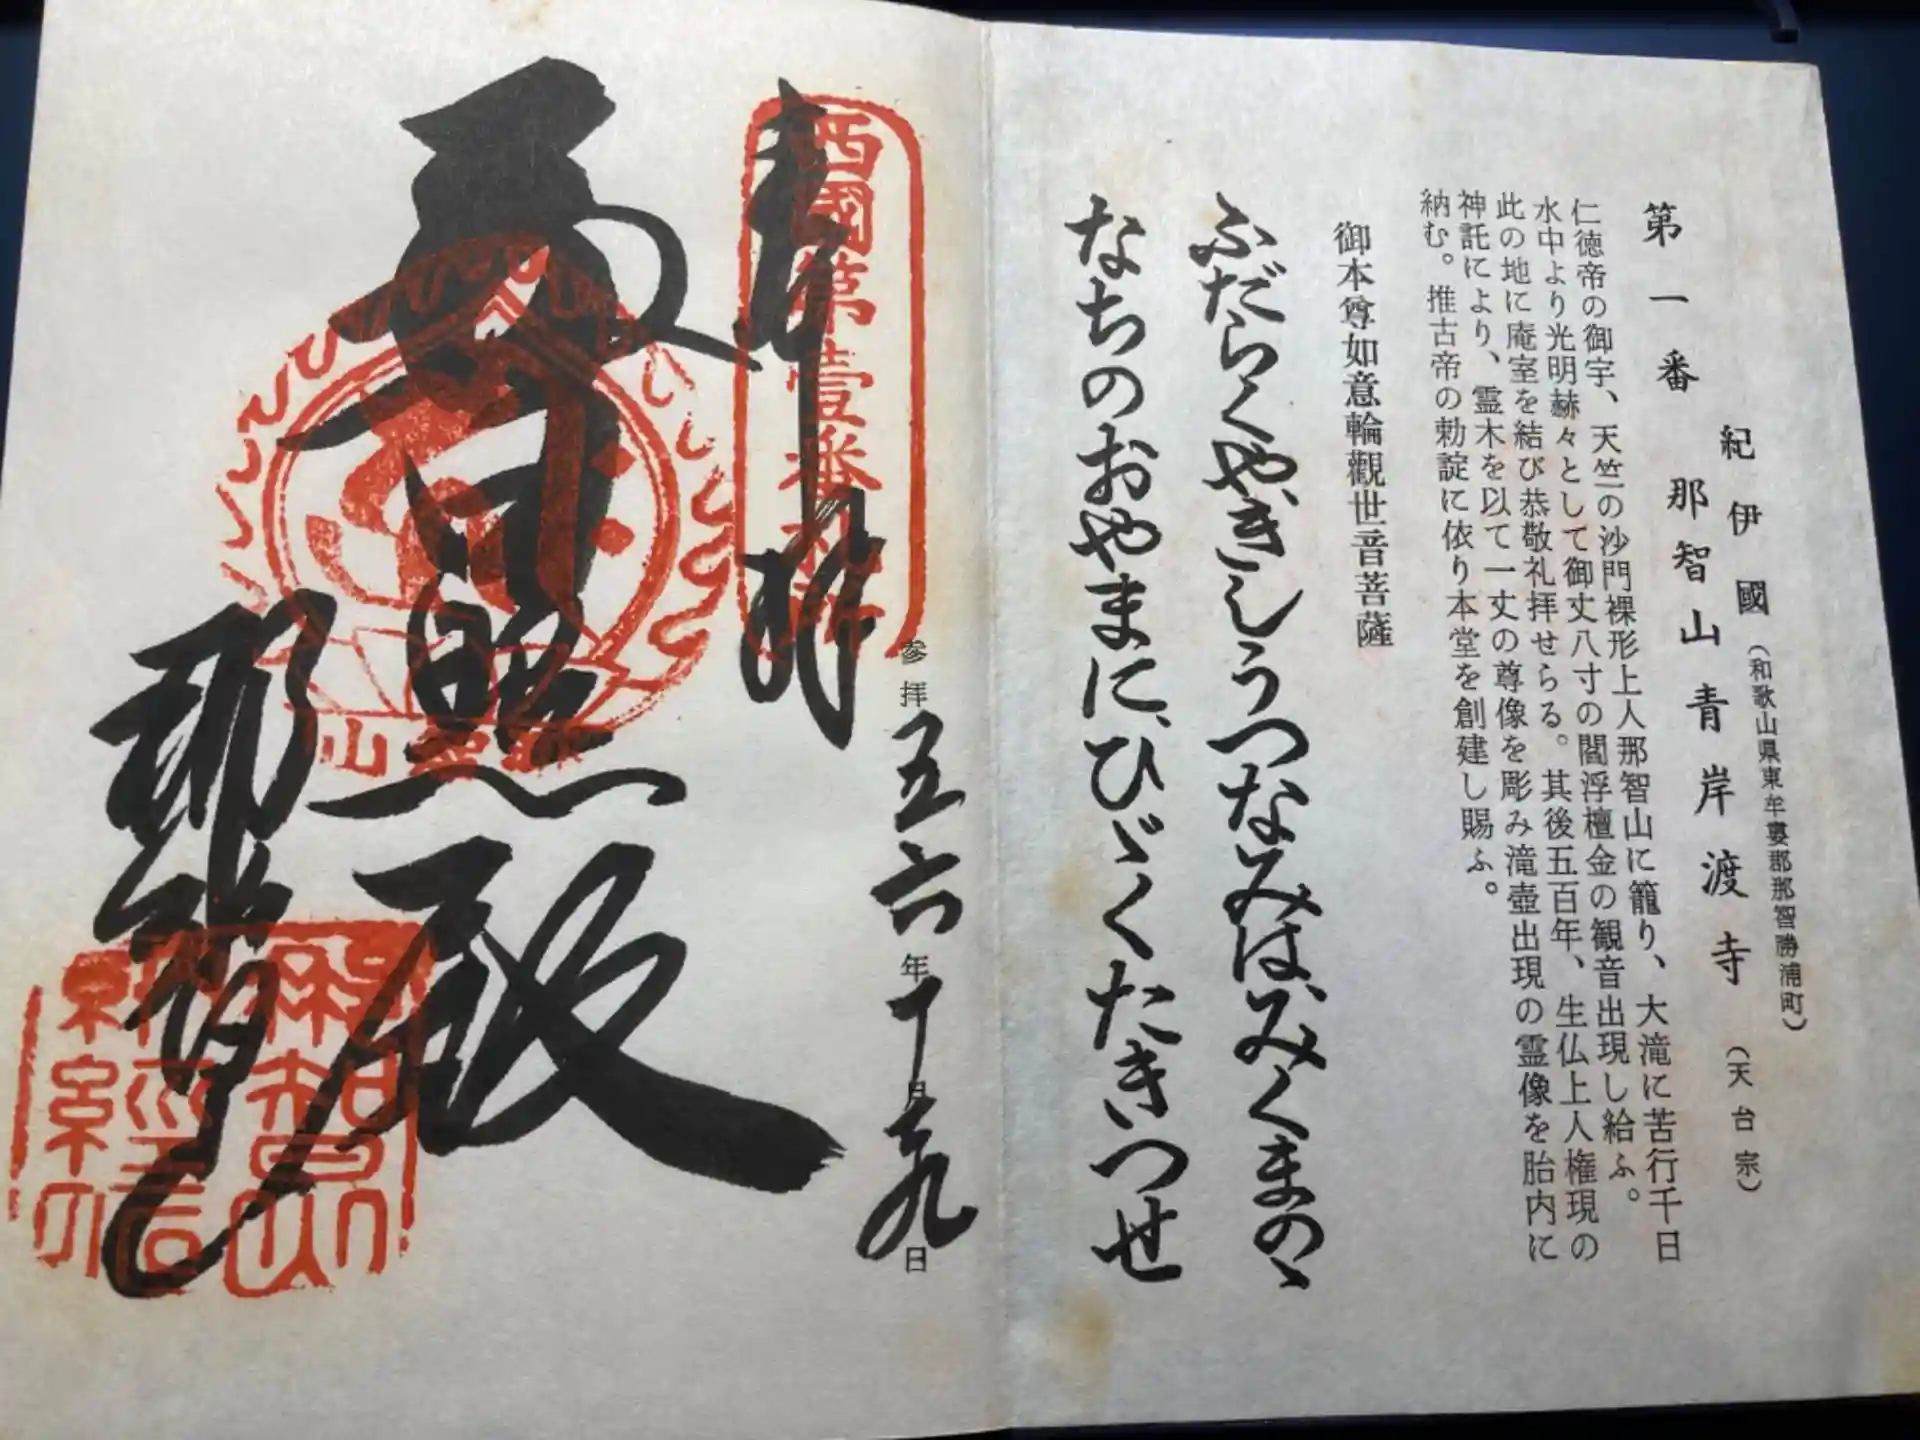 紀伊國(和歌山県東牟婁郡那智勝浦町)
第一番 那智山青岸渡寺(天台宗)
仁徳帝の御宇、天竺の沙門裸形上人那智山に籠り、大滝に苦行千日
水中より光明赫々として御丈八寸の閻浮檀金の観音出現し給ふ。
此の地に庵室を結び恭敬礼拝せらる。其後五百年、生仏上人権現の
神託により、霊木を以て一丈の尊像を彫み滝壺出現の霊像を胎内に
納む。推古帝の勅諚に依り本堂を創建し賜ふ。
御本尊如意輪觀世音菩薩
ふだらくやきしうつなみはみくまのゝ
なちのおやまに、ひゞくたきつせ
参拝五六年十月十九日
西國第壹番札所
奉拝
普照殿
那智山
那智山
納経印